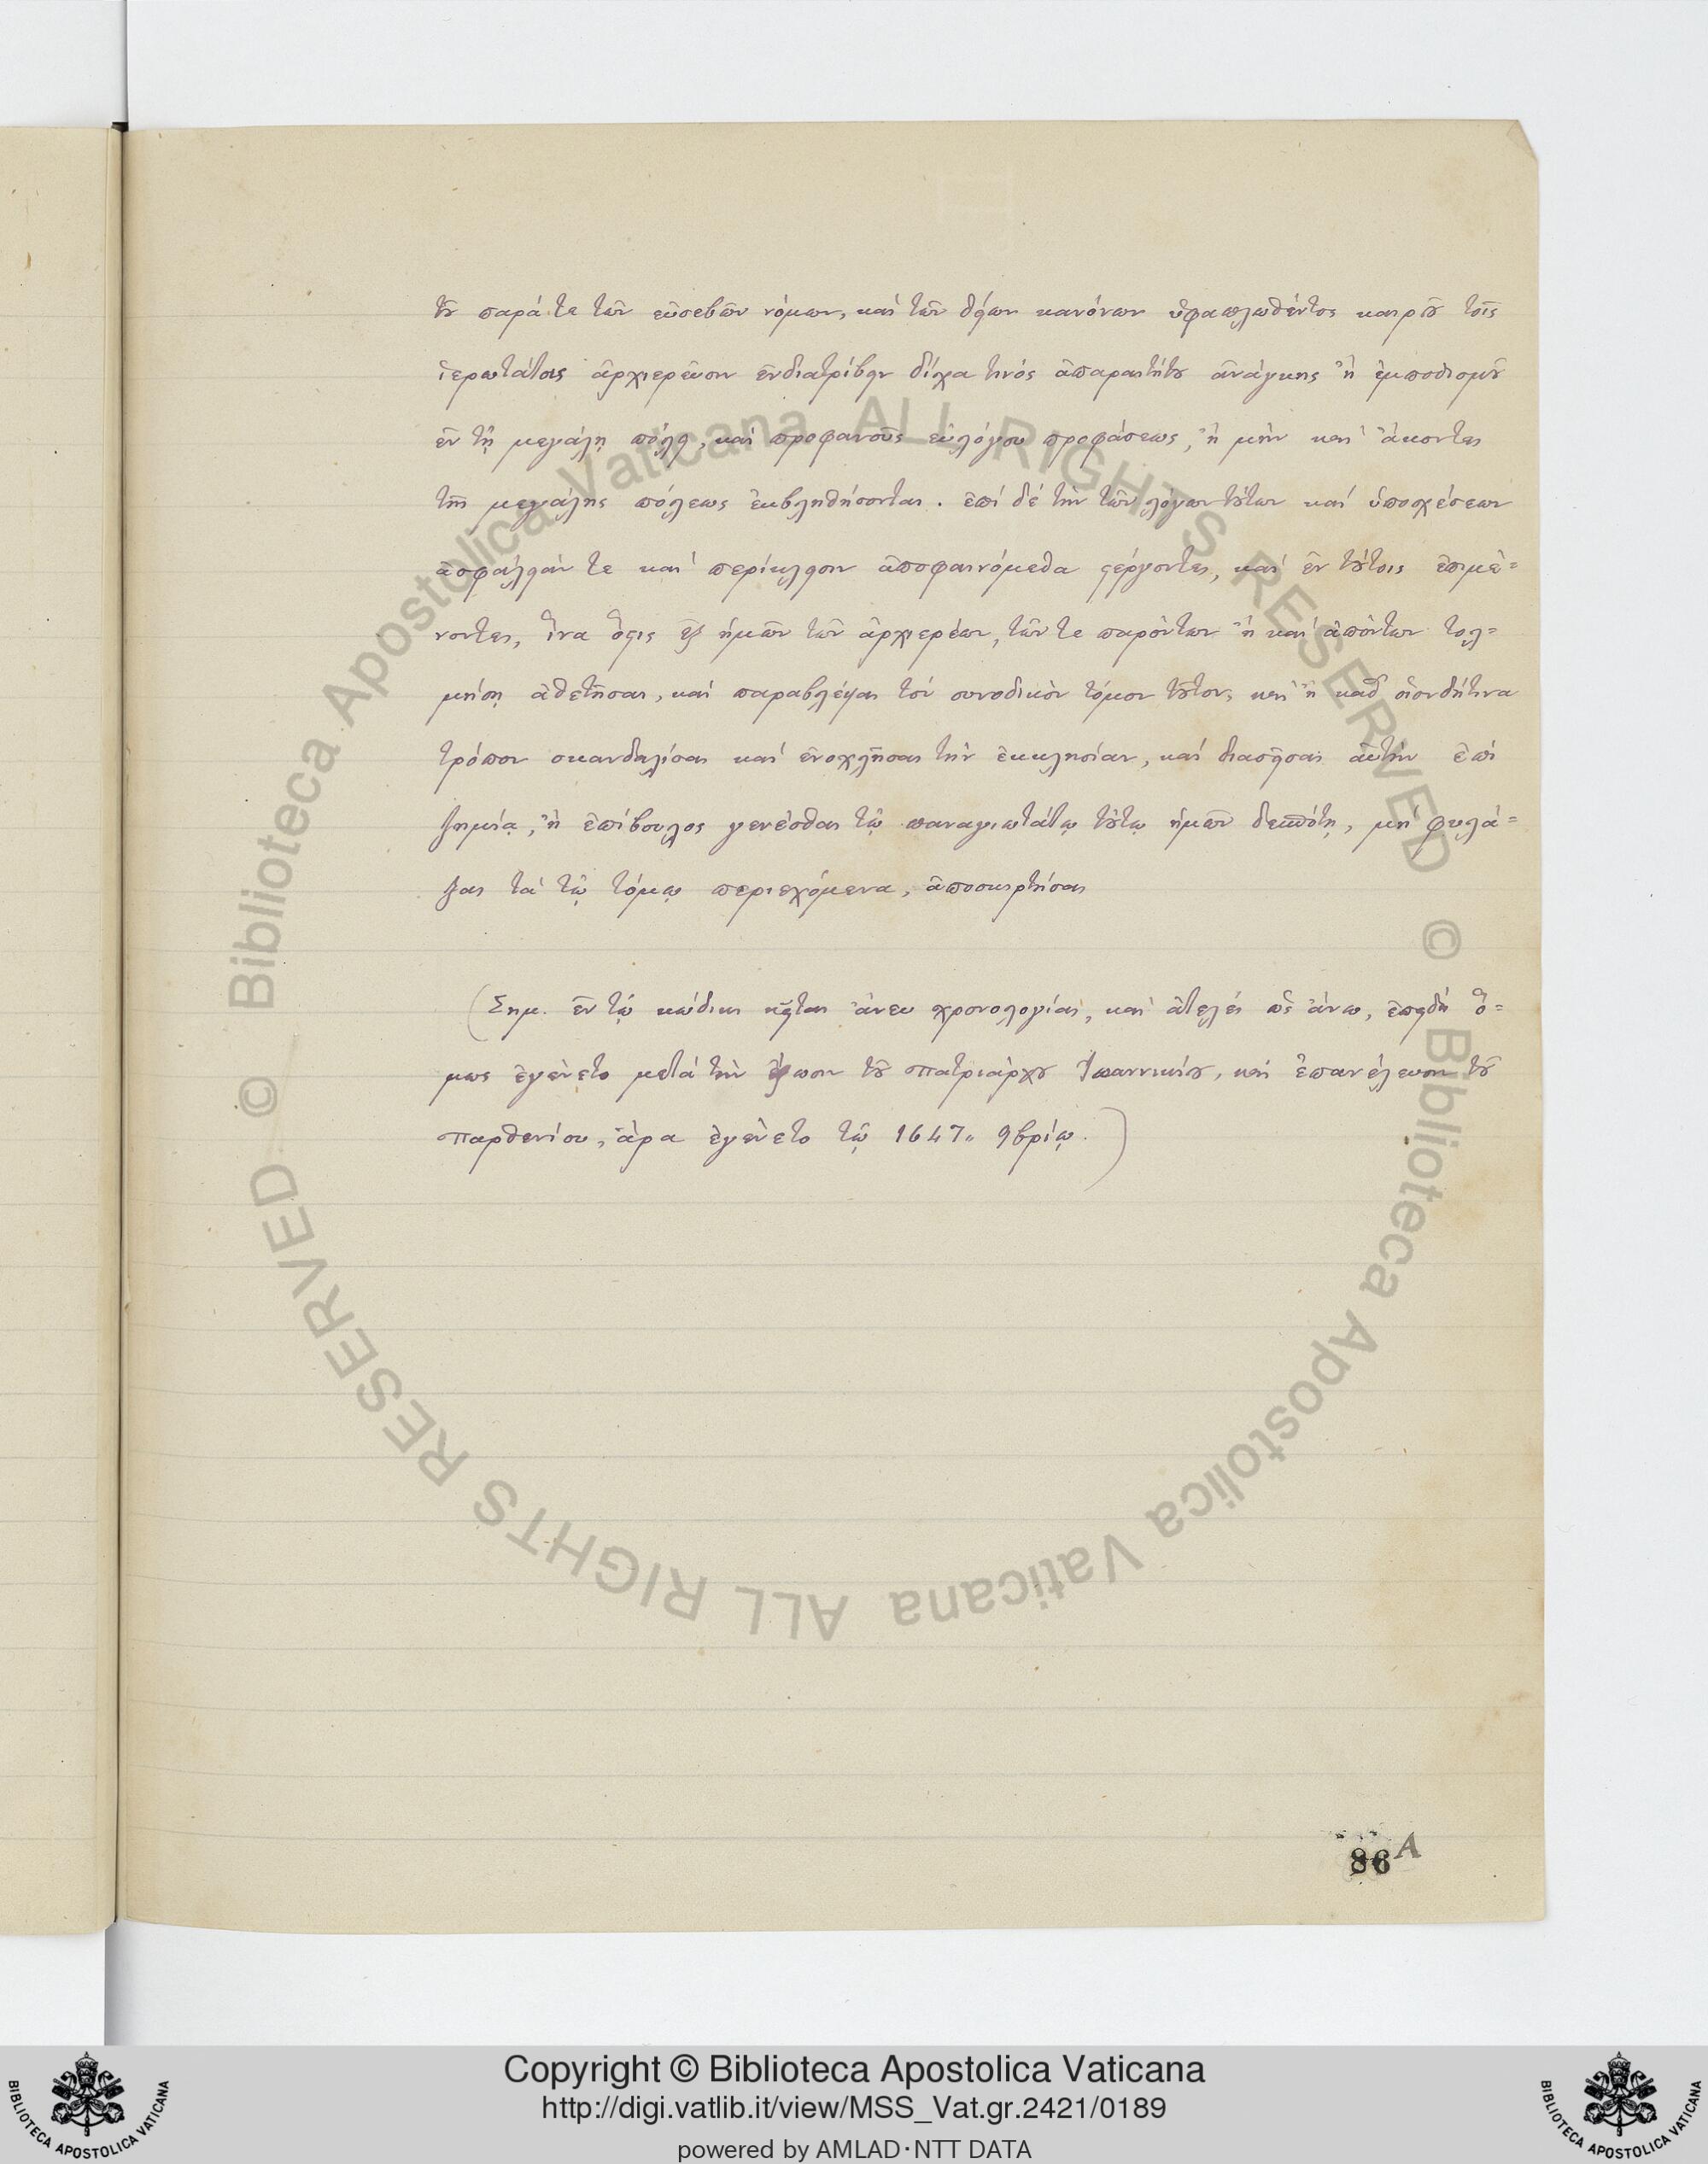 τοῦ παρά τε τῶν εὐσεβῶν νόμων, καί τῶν θείων κανόνων ὑφαπλωθέντος καιροῦ τοῖς
ἱερωτάτοις ἀρχιερεῦσιν ἐνδιατρίβειν δίχα τινός ἀπαραιτήτου ἀνάγκης ἤ ἐμποδισμοῦ
ἐν τῇ μεγάλῃ πόλει, καί προφανοῦς εὐλόγου προφάσεως, ἤ μήν καί ἄκοντες
τῆς μεγάλης πόλεως ἐκβληθήσονται. ἐπί δέ τήν τῶν λόγων τούτων καί ὑποσχέσεων
ἀσφάλειάν τε καί περίκλεισιν ἀποφαινόμεθα στέργοντες, καί ἐν τούτοις ἐπιμέ=
νοντες, ἵνα ὅστις ἐξ ἡμῶν τῶν ἀρχιερέων, τῶν τε παρόντων ἤ καί ἀπόντων τολ=
μήσῃ ἀθετῆσαι, καί παραβλέψαι τόν συνοδικόν τόμον τοῦτον, καί ἤ καθ᾽ οἱονδήτινα
τρόπον σκανδαλίσαι καί ἐνοχλῆσαι τήν ἐκκλησίαν, καί διασεῖσαι αὐτήν ἐπί
ζημίᾳ, ἤ ἐπίβουλος γενέσθαι τῷ παναγιωτάτῳ τούτῳ ἡμῶν δεσπότῃ, μή φυλά=
ξας τά τῷ τόμῳ περιεχόμενα, ἀποσκιρτήσαι
(Σημ. ἐν τῷ κώδικι κεῖται ἄνευ χρονολογίας, καί ἀτελές ὡς ἄνω, ἐπειδή ὅ=
μως ἐγένετο μετά τήν ἔξωσιν τοῦ Πατριάρχου Ἰωαννικίου, καί ἐπανέλευσιν τοῦ
Παρθενίου, ἄρα ἐγένετο τῷ 1647, 9βρίῳ.)
86 A
Copyright © Biblioteca Apostolica Vaticana
http://digi.vatlib.it/view/MSS_Vat.gr.2421/0189
powered by AMLAD·NTT DATA
BIBLIOTECA APOSTOLICA VATICANA
BIBLIOTECA APOSTOLICA VATICANA
© Biblioteca Apostolica Vaticana ALL RIGHTS RESERVED
© Biblioteca Apostolica Vaticana ALL RIGHTS RESERVED